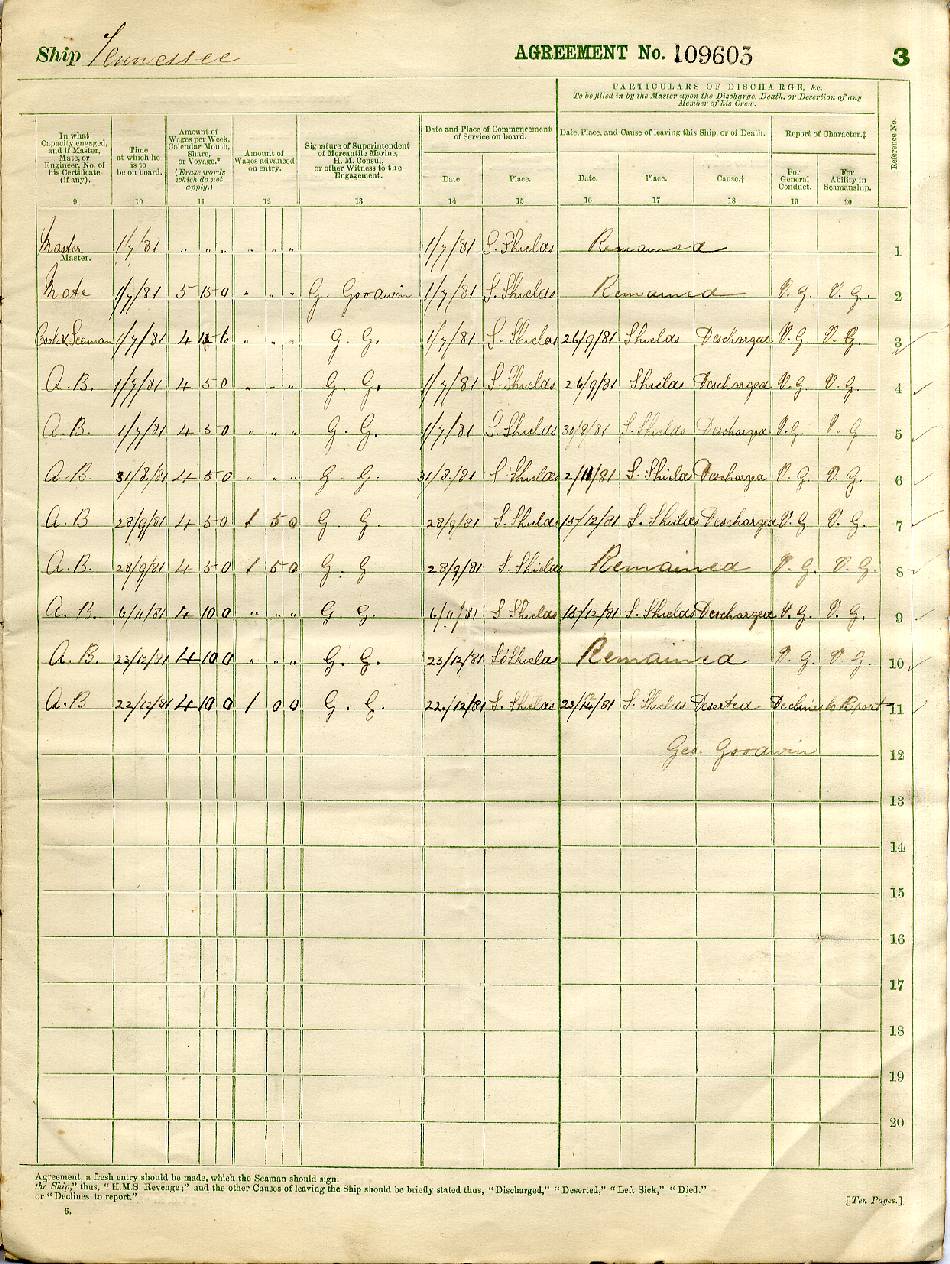 Ship Tennessee AGREEMENT No. 109605 3
PARTICULARS OF DISCHARGE, &c.
To be filled in by the Master upon the Discharge, Death, or Desertion of any
Member of his Crew.
In what
Capacity engaged,
and if Master,
Mate, or
Engineer, No. of
his Certificate
(if any).
Time
at which he
is to
be on board.
Amount of
Wages per Week,
Calendar Month,
Share,
or Voyage.*
[Erase words
which do not
apply.]
Amount of
Wages advanced
on entry.
Signature of Superintendent
of Mercantile Marine,
H. M. Consul,
or other Witness to the
Engagement.
Date and Place of Commencement
of Service on board.
Date.
Place.
Date, Place, and Cause of leaving this Ship, or of Death.
Date.
Place.
Cause.†
Report of Character.‡
For
General
Conduct.
For
Ability in
Seamanship.
Reference No.
9 10 11 12 13 14 15 16 17 18 19 20
Master 1/7/81 " " " " " " 1/7/81 S. Shields Remained 1
Master.
Mate 1/7/81 5 15 0 " " " G. Goodwin 1/7/81 S. Shields Remained V. G. V. G. 2
Cook & Seaman 1/7/81 4 " " " G. G. 1/7/81 S. Shields 26/9/81 Shields Discharged V. G V. G. 3
A. B. 1/7/81 4 5 0 " " " G. G. 1/7/81 S. Shields 26/9/81 Shields Discharged V. G. V. G. 4
A. B. 1/7/81 4 5 0 " " " G. G. 1/7/81 S. Shields 30/8/81 S. Shields Discharged V. G. V. G 5
A. B 31/8/81 4 5 0 " " " G. G. 31/8/81 S Shields 2/11/81 S. Shields Discharged V. G. V. G. 6
A. B 28/9/81 4 5 0 1 5 0 G. G. 28/9/81 S. Shields /12/81 S. Shields Discharged V. G. V. G. 7
A. B. 28/9/81 4 5 0 1 5 0 G. G 28/9/81 S. Shields Remained V. G. V. G. 8
A. B. 6/11/81 4 10 0 " " " G G. 6/11/81 S Shields /12/81 S. Shields Discharged V. G. V. G. 9
A. B. 23/12/81 4 10 0 " " " G. G. 23/12/81 S. Shields Remained V. G. V. G. 10
A. B 22/12/81 4 10 0 1 0 0 G. G. 22/12/81 S. Shields 23/12/81 S. Shields Deserted Declines to Report 11
Geo. Goodwin 12
13
14
15
16
17
18
19
20
Agreement, a fresh entry should be made, which the Seaman should sign.
the Ship," thus, "H.M.S. Revenge;" and the other Causes of leaving the Ship should be briefly stated thus, "Discharged," "Deserted," "Left Sick," "Died."
or "Declines to report."
6. [Ten Pages.]